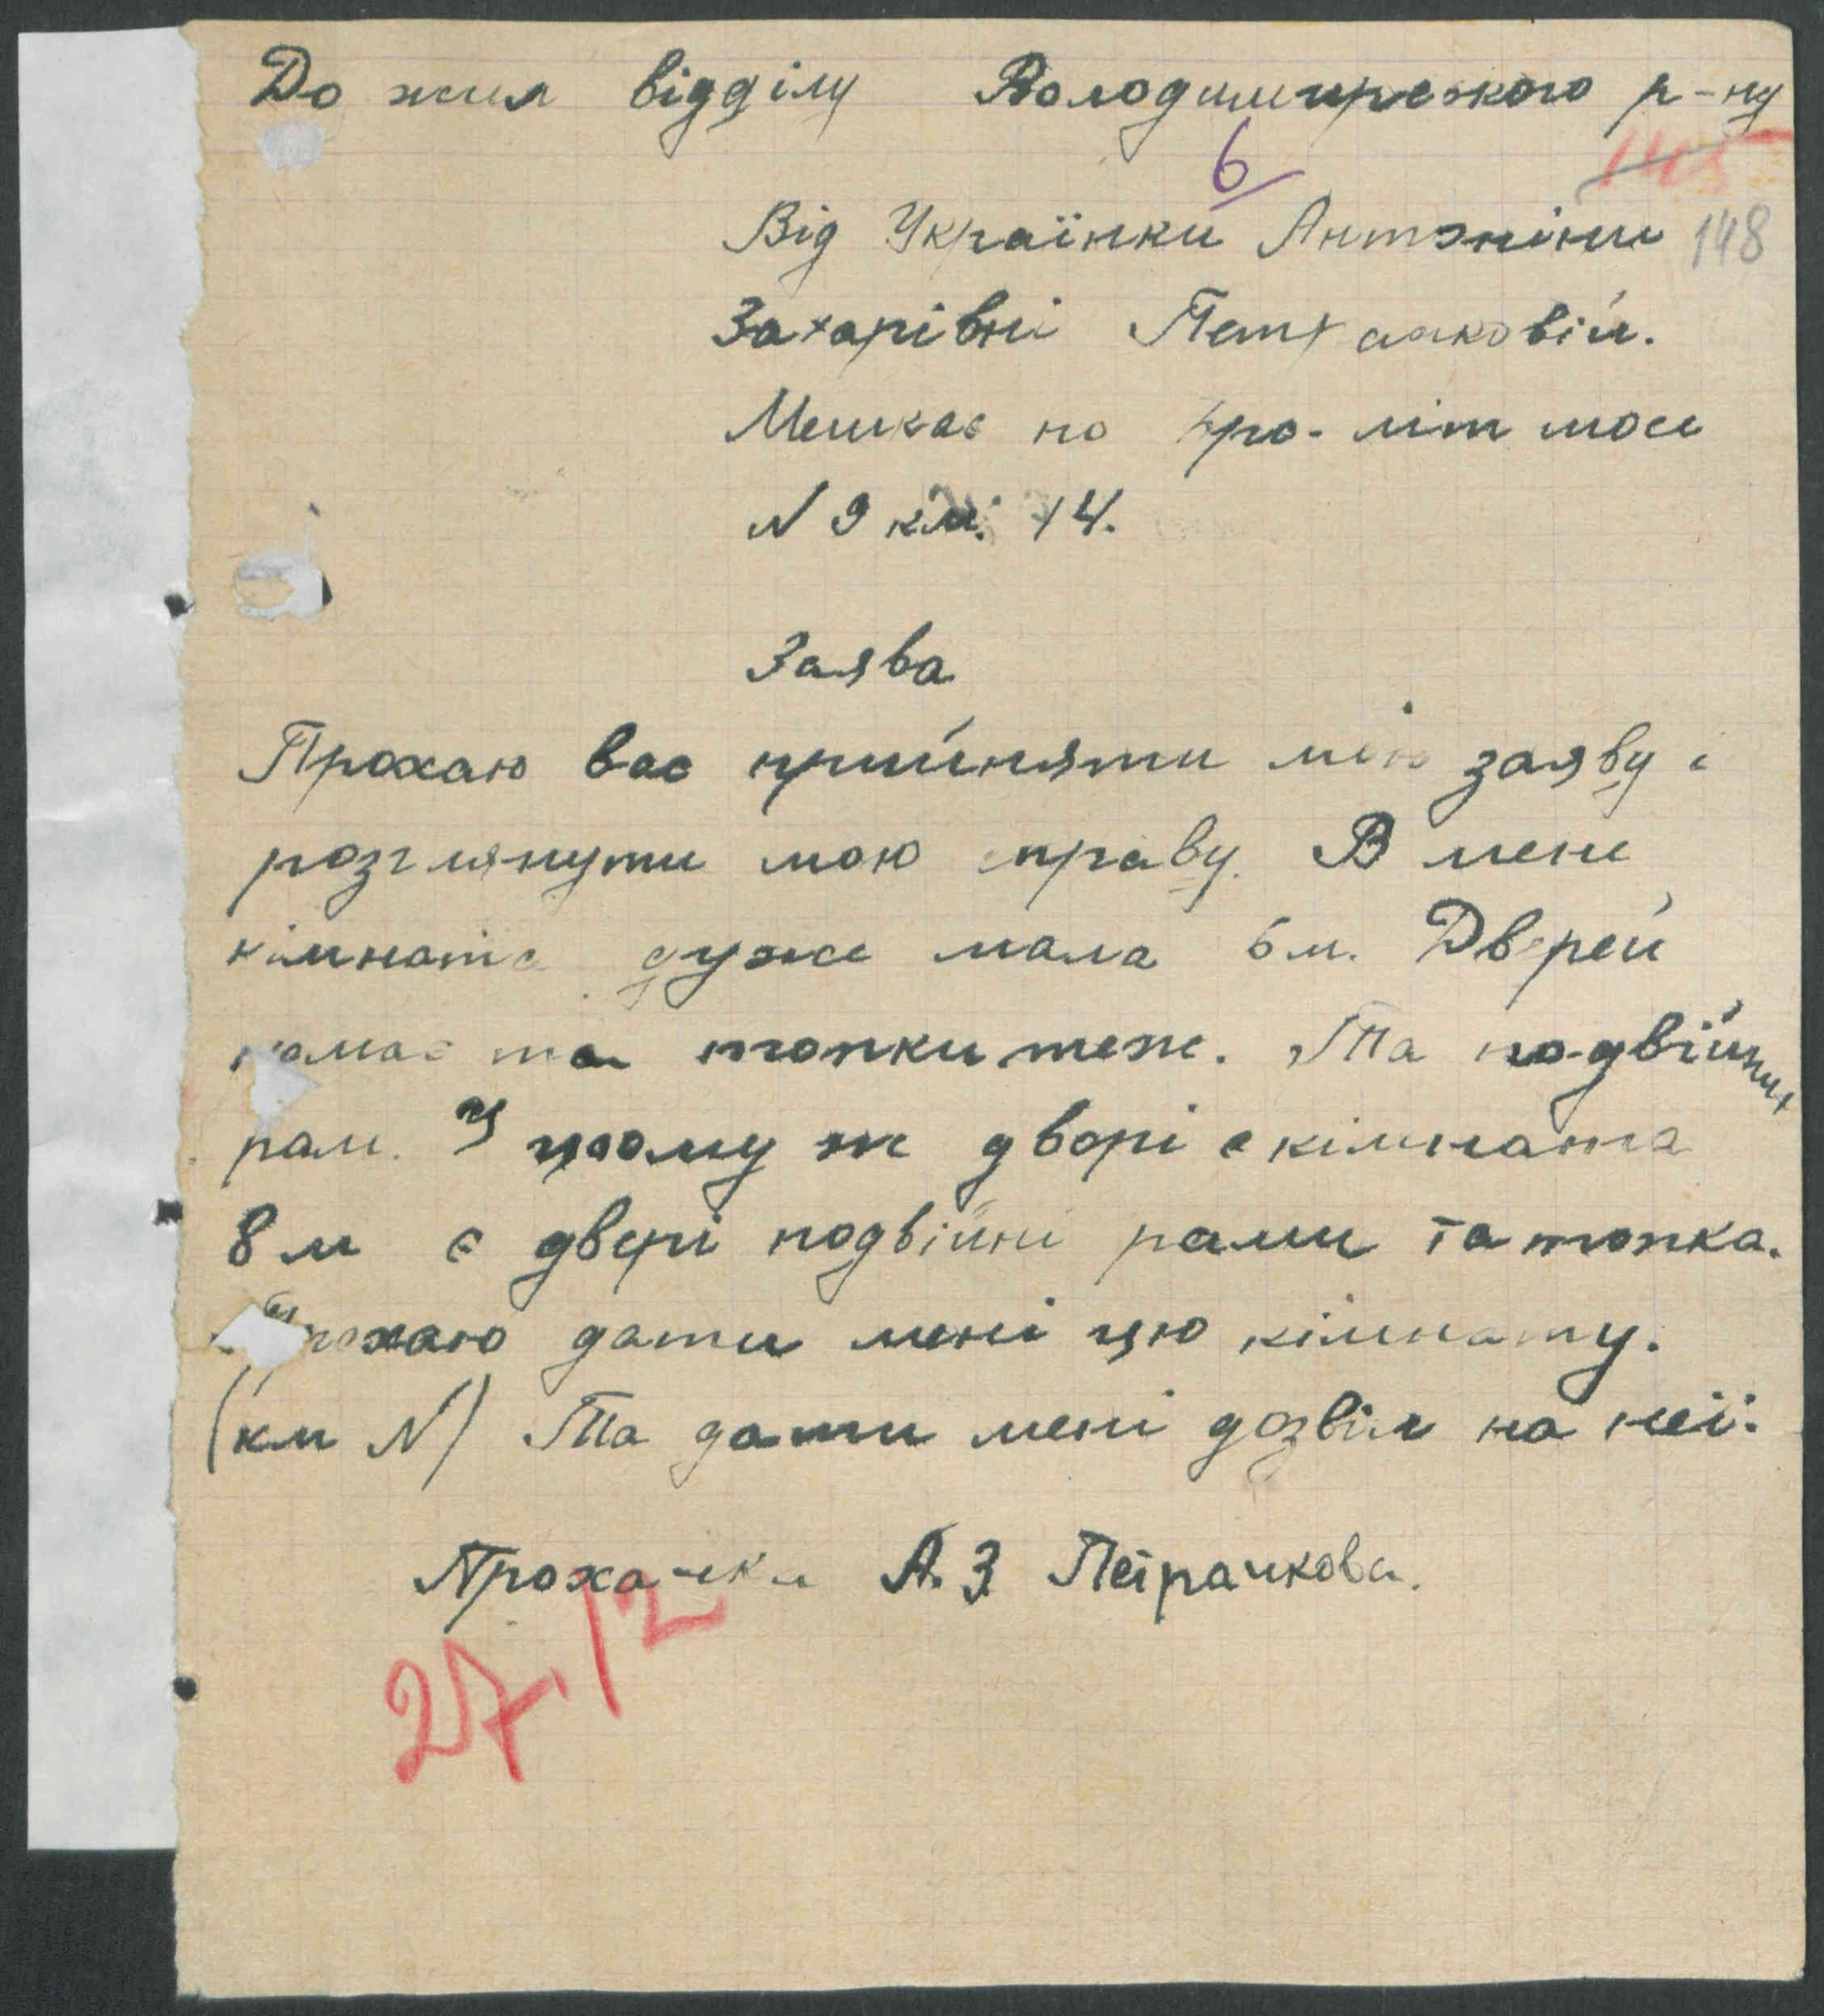 До жил відділу Володимирского р-ну
6
145
Від Українки Антэніни 148
Захарівні Петрачковій.
Мешкає по бро-літ шосе
N 9 км. 14.
Заява
Прохаю вас прийняти мою заяву і
розглянути мою справу. В мене
кімната дуже мала 6 м. Дверей
намає та топки теж. Та подвійних
рам. У цьому ж дворі є кімната
8 м є двері подвійні рами та топка.
Прохаю дати мені цю кімнату.
(км N) Та дати мені дозвіл на неї.
Прохачка А. З Петрачкова.
27.12